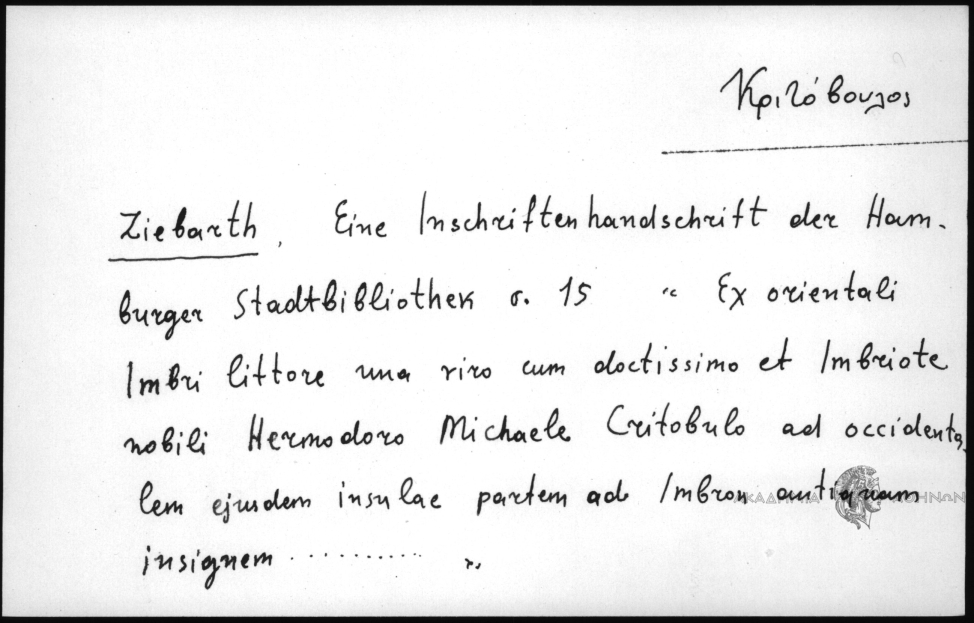 Κριτόβουλος
Ziebarth, Eine Inschriftenhandschrift der Ham-
burger Stadtbibliothek σ. 15 " Ex orientali
Imbri littore una viro cum doctissimo et Imbriote
nobili Hermodoro Michaele Critobulo ad occidenta
lem ejusdem insulae partem ad Imbron antiquam
ΑΚΑΔΗΜΙΑ ΑΘΗΝΩΝ
insignem .......... "